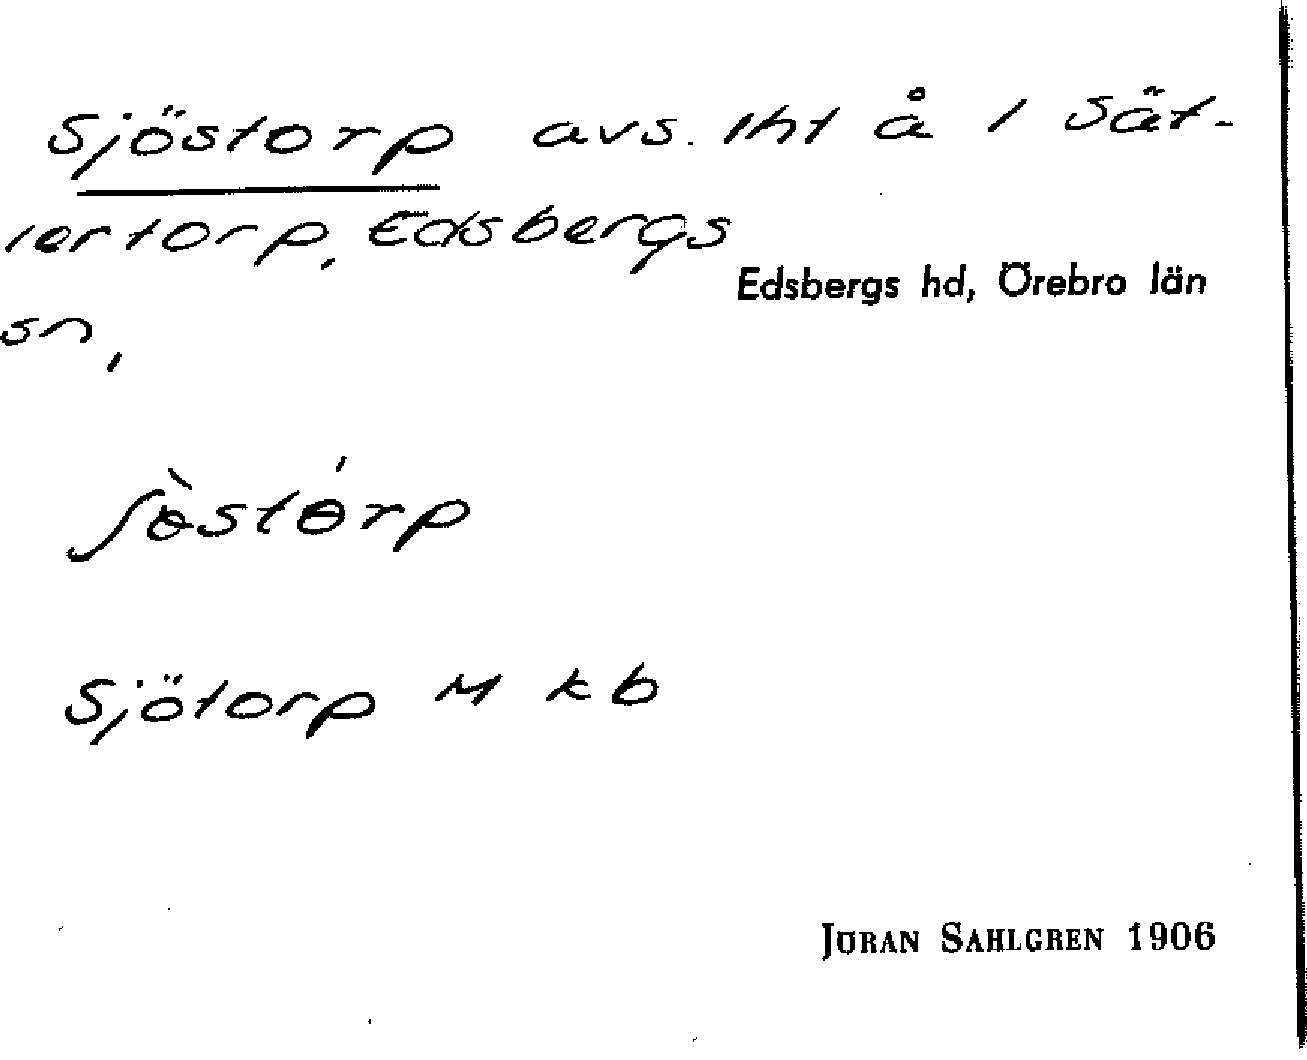 Sjöstorp avs. lht å / Sät-
tertorp, Edsbergs
Edsbergs hd, Örebro län
sn,
ʃɵ̀stɵ́rp
Sjötorp M kb
JÖRAN SAHLGREN 1906